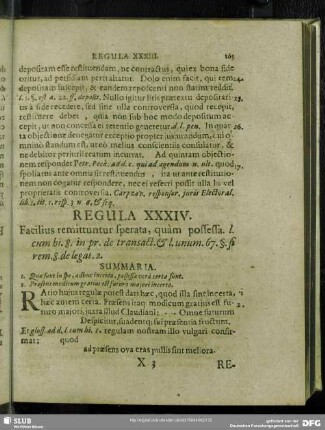 REGULA XXXIII. 165
depositam esse restituendam, ut contractus, qui ex bona fide
oritur, ad perfidiam pertrahatur. Dolo enim facit, qui rem 24.
depositam suscepit, & eandem reposcenti non statim reddit.
l. 1. §. est a. 22. ff. deposit. Nullo igitur litis prætextu depositari- 25.
us à fide recedere, sed sine ulla controversia, quod recepit,
restituere debet, quia non sub hoc modo depositum ac-
cepit, ut non concessa ei retentio generetur. d. l. pen. In quar- 26.
ta objectione denegatur exceptio propter juramentum, cui o-
mnino standum est, uteò melius conscientiis consulatur, &
ne debitor perjurii reatum incurrat. Ad quintam objectio-
nem respondet Petr. Pech. ad d. c. qui ad agendum n. ult. quod, 27.
spoliatus ante omnia sit restituendus, ita ut ante restitutio-
nem non cogatur respondere, nec ei referri possit ulla la vel
proprietatis controversia, Carpzov. respons. juris Electoral.
lib. 1. tit. 1. resp. 3 n. 6. & seq.
REGULA XXXIV.
Facilius remittuntur sperata, quàm possessa. l.
cum hi. 8. in pr. de transact. & l. unum. 67. §. si
rem. 8. de legat. 2.
SUMMARIA.
1. Quæ sunt in spe, adhuc incerta, possessa verò certa sunt.
2. Præsens modicum gratius est futuro majori incerto.
RAtio hujus regulæ potest dari hæc, quod illa sint incerta, 1.
hæc autem certa. Præsens itaq; modicum gratius est fu- 2.
turo majori, juxta illud Claudiani: - - Omne futurum
Despicitur, suadentq; sui præsentia fructum,
Et gloss. ad d. l. cum hi. 8. regulam nostram illo vulgari confir-
mat: quod
ad præsens ova cras pullis sint meliora.
X 3 RE-
SLUB
DFG